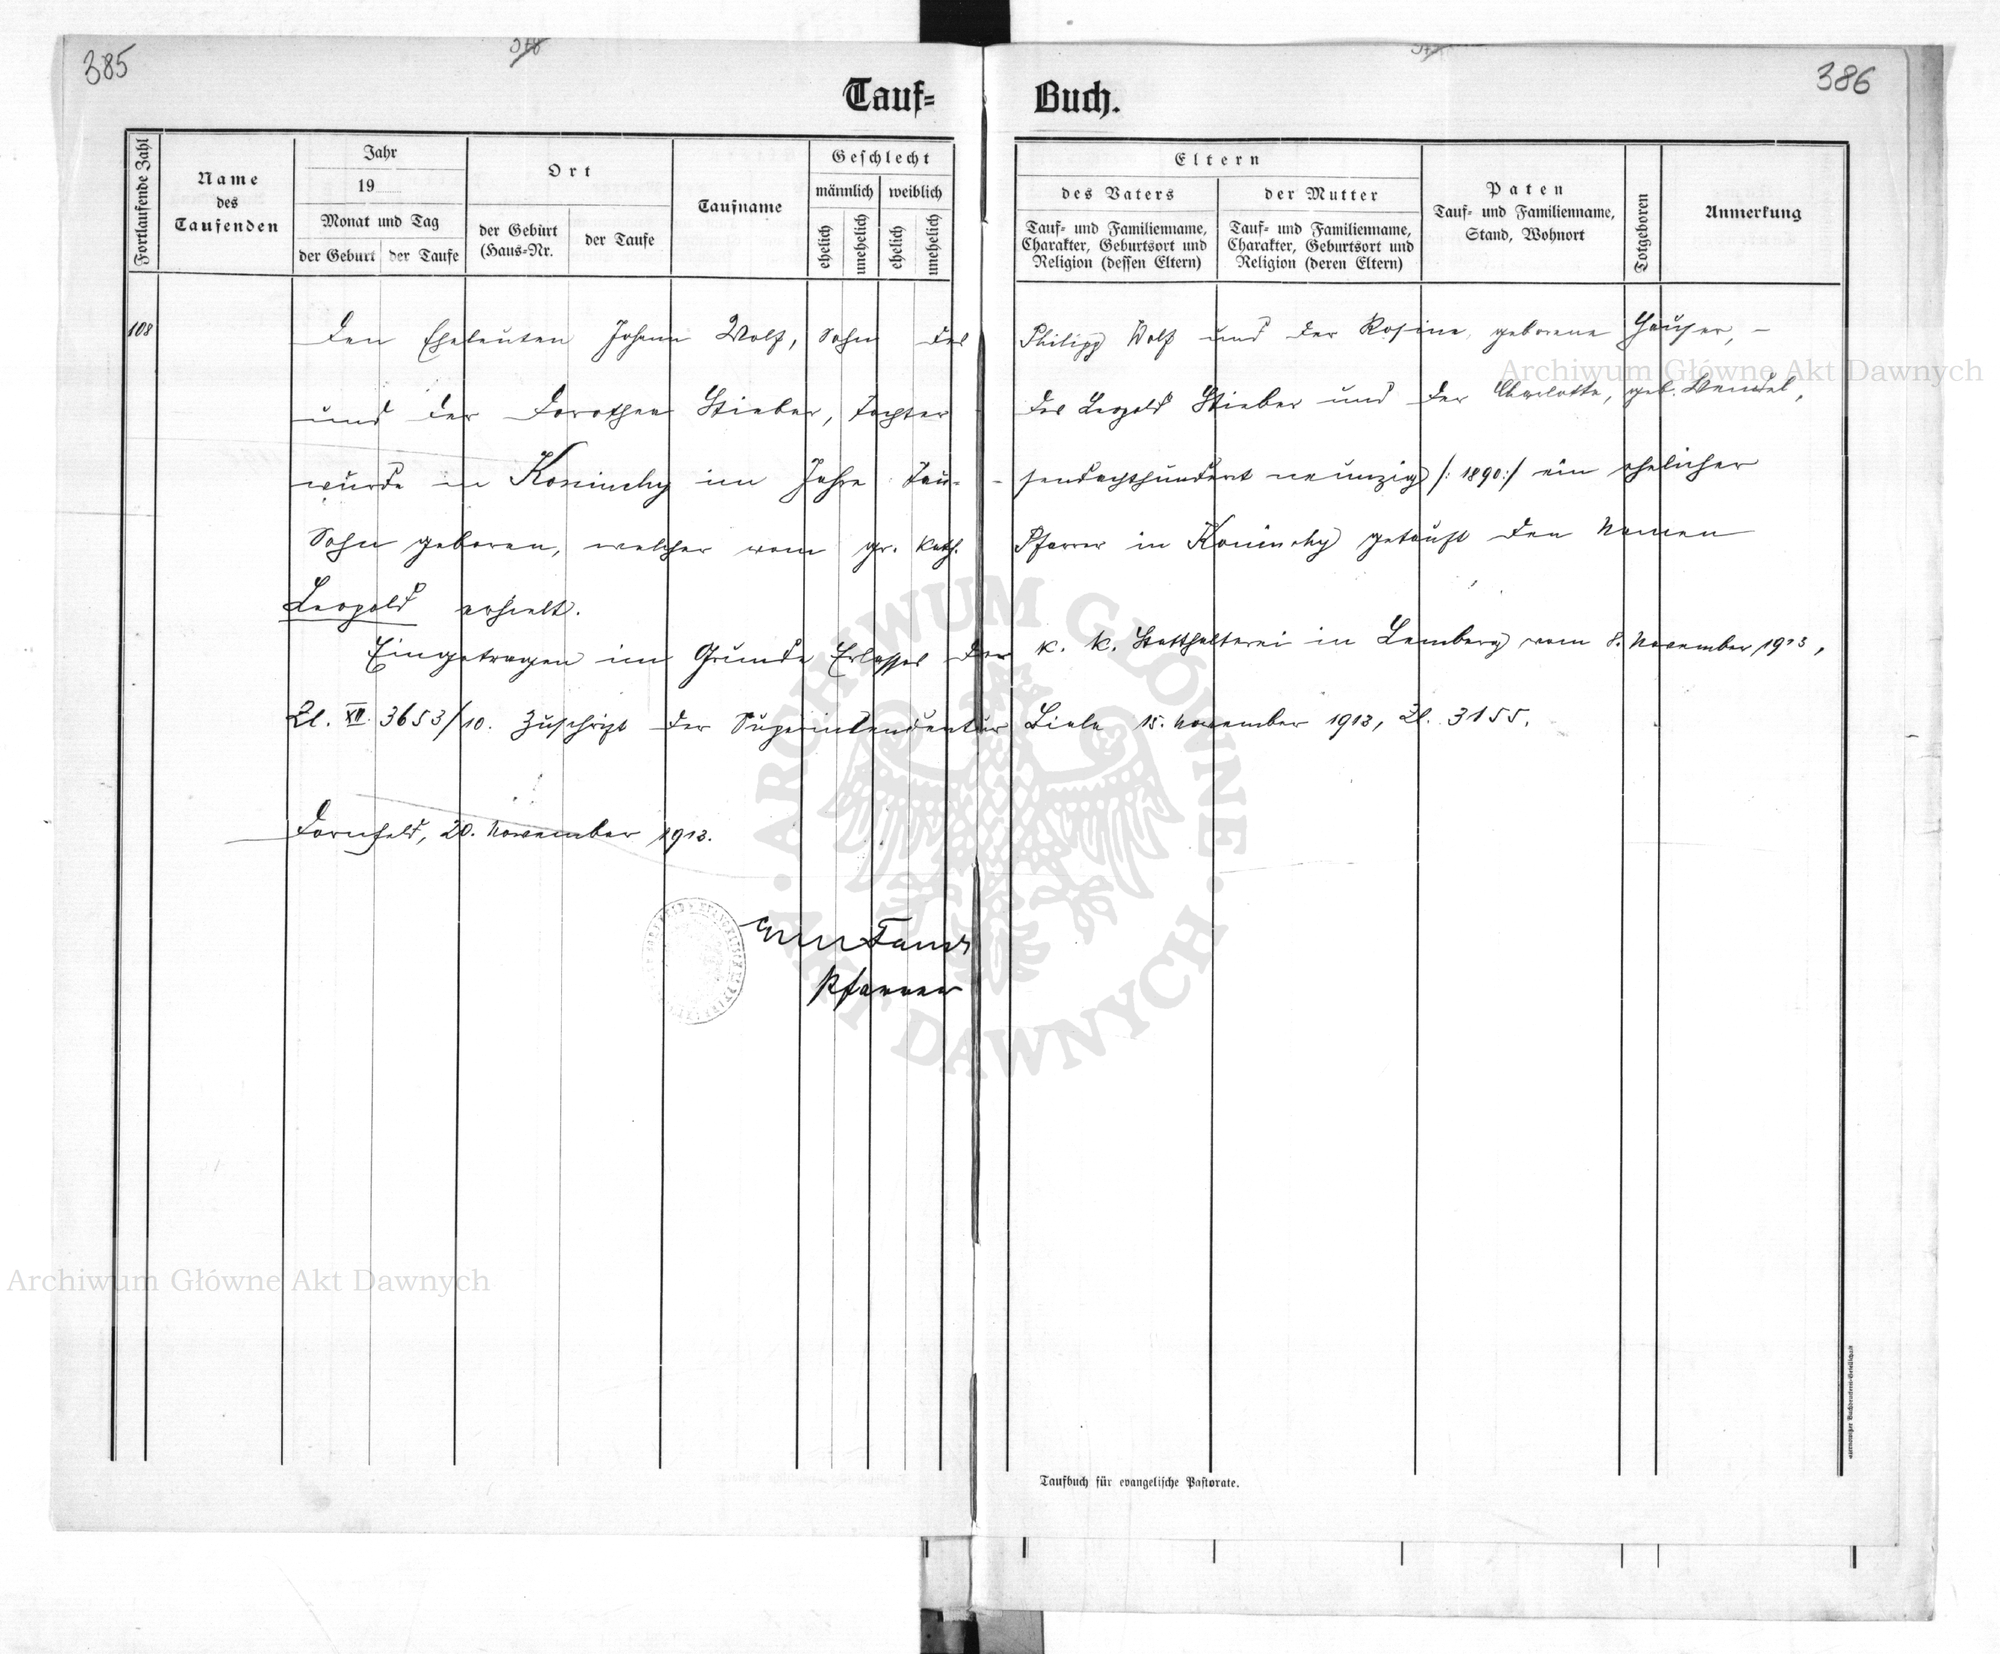 385
386
Tauf- Buch.
Fortlaufende Zahl
Name
des
Taufenden
Jahr
19
Monat und Tag
der Geburt
der Taufe
Ort
der Geburt
(Haus-Nr.
der Taufe
Taufname
Geschlecht
männlich
weiblich
ehelich
unehelich
ehelich
unehelich
Eltern
des Vaters
Tauf- und Familienname,
Charakter, Geburtsort und
Religion (dessen Eltern)
der Mutter
Tauf- und Familienname,
Charakter, Geburtsort und
Religion (deren Eltern)
Paten
Tauf- und Familienname,
Stand, Wohnort
Totgeboren
Anmerkung
108 Den Eheleuten Johann Wolf, Sohn des Philipp Wolf und der Rosine, geborene Hauser, –
und der Dorothea Stieber, Tochter des Leopold Stieber und der Charlotte, geb. Wendel,
wurde in im Jahre Tau- sendachthundert neunzig /: 1890 :/ ein ehelicher
Sohn geboren, welcher vom gr. kath. Pfarrer in getauft den Namen
Leopold erhielt.
Eingetragen im Grunde Erlasses der k. k. Statthalterei in Lemberg vom 8. November 1913,
Zl. XII. 3653/10. Zuschrift der Superintendentur Biala 15. November 1913, Zl. 3155.
Dornfeld, 20. November 1913.
Pfarrer
Taufbuch für evangelische Pastorate.
Archiwum Główne Akt Dawnych
Archiwum Główne Akt Dawnych
ARCHIWUM GŁÓWNE
AKT DAWNYCH